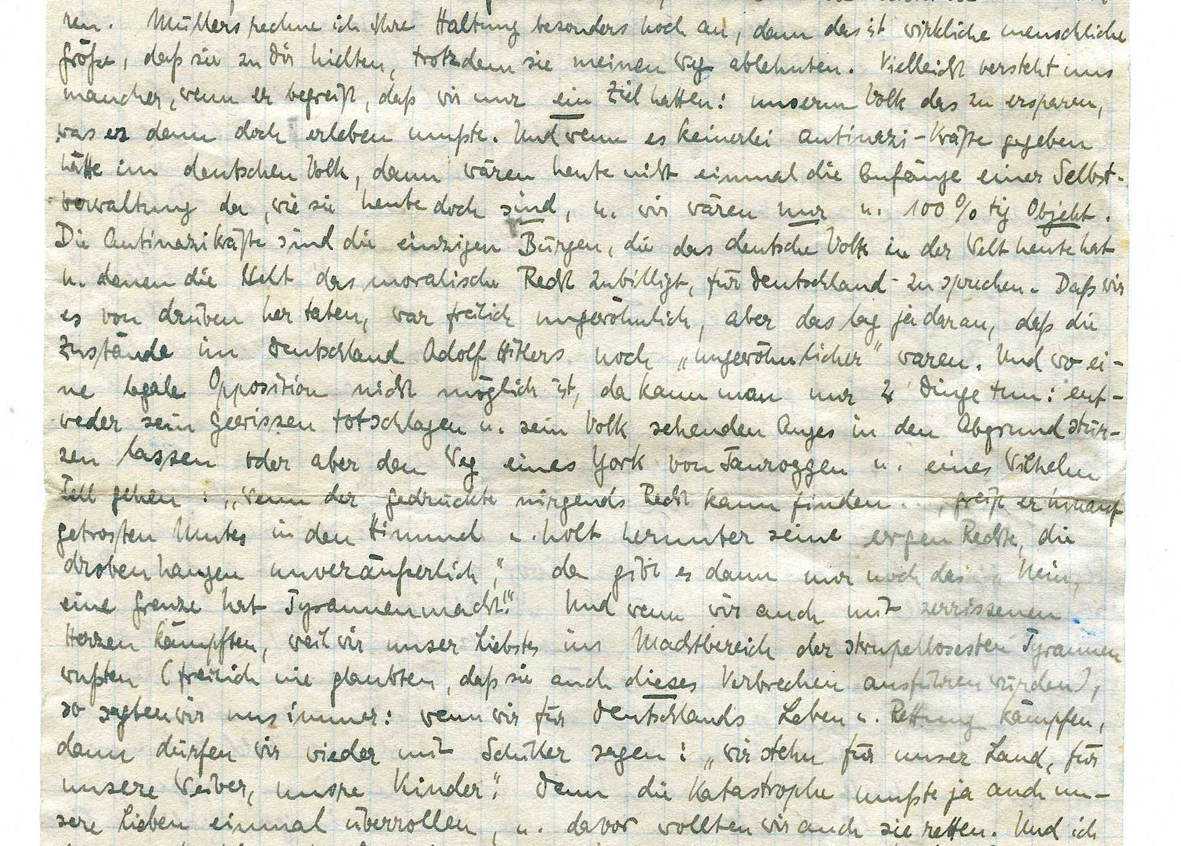 ren. Müllers rechne ich Ihre Haltung besonders hoch an, denn das ist wirkliche menschliche
Größe, daß sie zu Dir hielten, trotzdem sie meinen Weg ablehnten. Vielleicht versteht uns
mancher, wenn er begreift, daß wir nur ein Ziel hatten: unserm Volk das zu ersparen,
was es dann doch erleben mußte. Und wenn es keinerlei Antinazi-Kräfte gegeben
hätte im deutschen Volk, dann wären heute nicht einmal die Anfänge einer Selbst-
verwaltung da, wie sie heute doch sind, u. wir wären nur u. 100%tig Objekt.
Die Antinazikräfte sind die einzigen Bürgen, die das deutsche Volk in der Welt heute hat
u. denen die Welt das moralische Recht zubilligt, für Deutschland zu sprechen. Daß wir
es von drüben her taten, war freilich ungewöhnlich, aber das lag ja daran, daß die
Zustände im Deutschland Adolf Hitlers noch „ungewöhnlicher" waren. Und wo ei-
ne legale Opposition nicht möglich ist, da kann man nur 2 Dinge tun: ent-
weder sein Gewissen totschlagen u. sein Volk sehenden Auges in den Abgrund stür-
zen lassen oder aber den Weg eines York von Tauroggen u. eines Wilhelm
Tell gehen: „Wenn der Gedrückte nirgends Recht kann finden..., greift er hinauf
getrosten Mutes in den Himmel u. holt herunter seine ewgen Rechte, die
droben hangen unveräußerlich," da gibt es dann nur noch das Nein,
eine Grenze hat Tyrannenmacht!" Und wenn wir auch mit zerrissenen
Herzen kämpften, weil wir unser Liebstes im Machtbereich der skrupellosesten Tyrannen
wußten (freilich nie glaubten, daß sie auch dieses Verbrechen ausführen würden),
so sagten wir uns immer: wenn wir für Deutschlands Leben u. Rettung kämpfen,
dann dürfen wir wieder mit Schiller sagen: „wir stehn für unser Land, für
unsere Weiber, unsre Kinder". Denn die Katastrophe mußte ja auch un-
sere Lieben einmal überrollen, u. davor wollten wir auch sie retten. Und ich